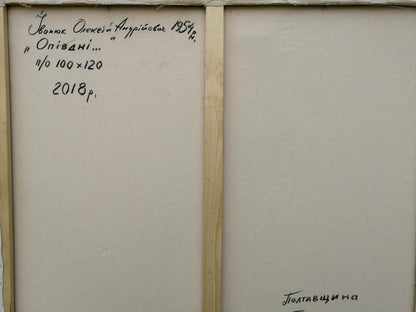 Іванюк Олексій Андрійович 1954 р.н.
„Опівдні..."
п/о 100×120
2018р.
Полтавщина